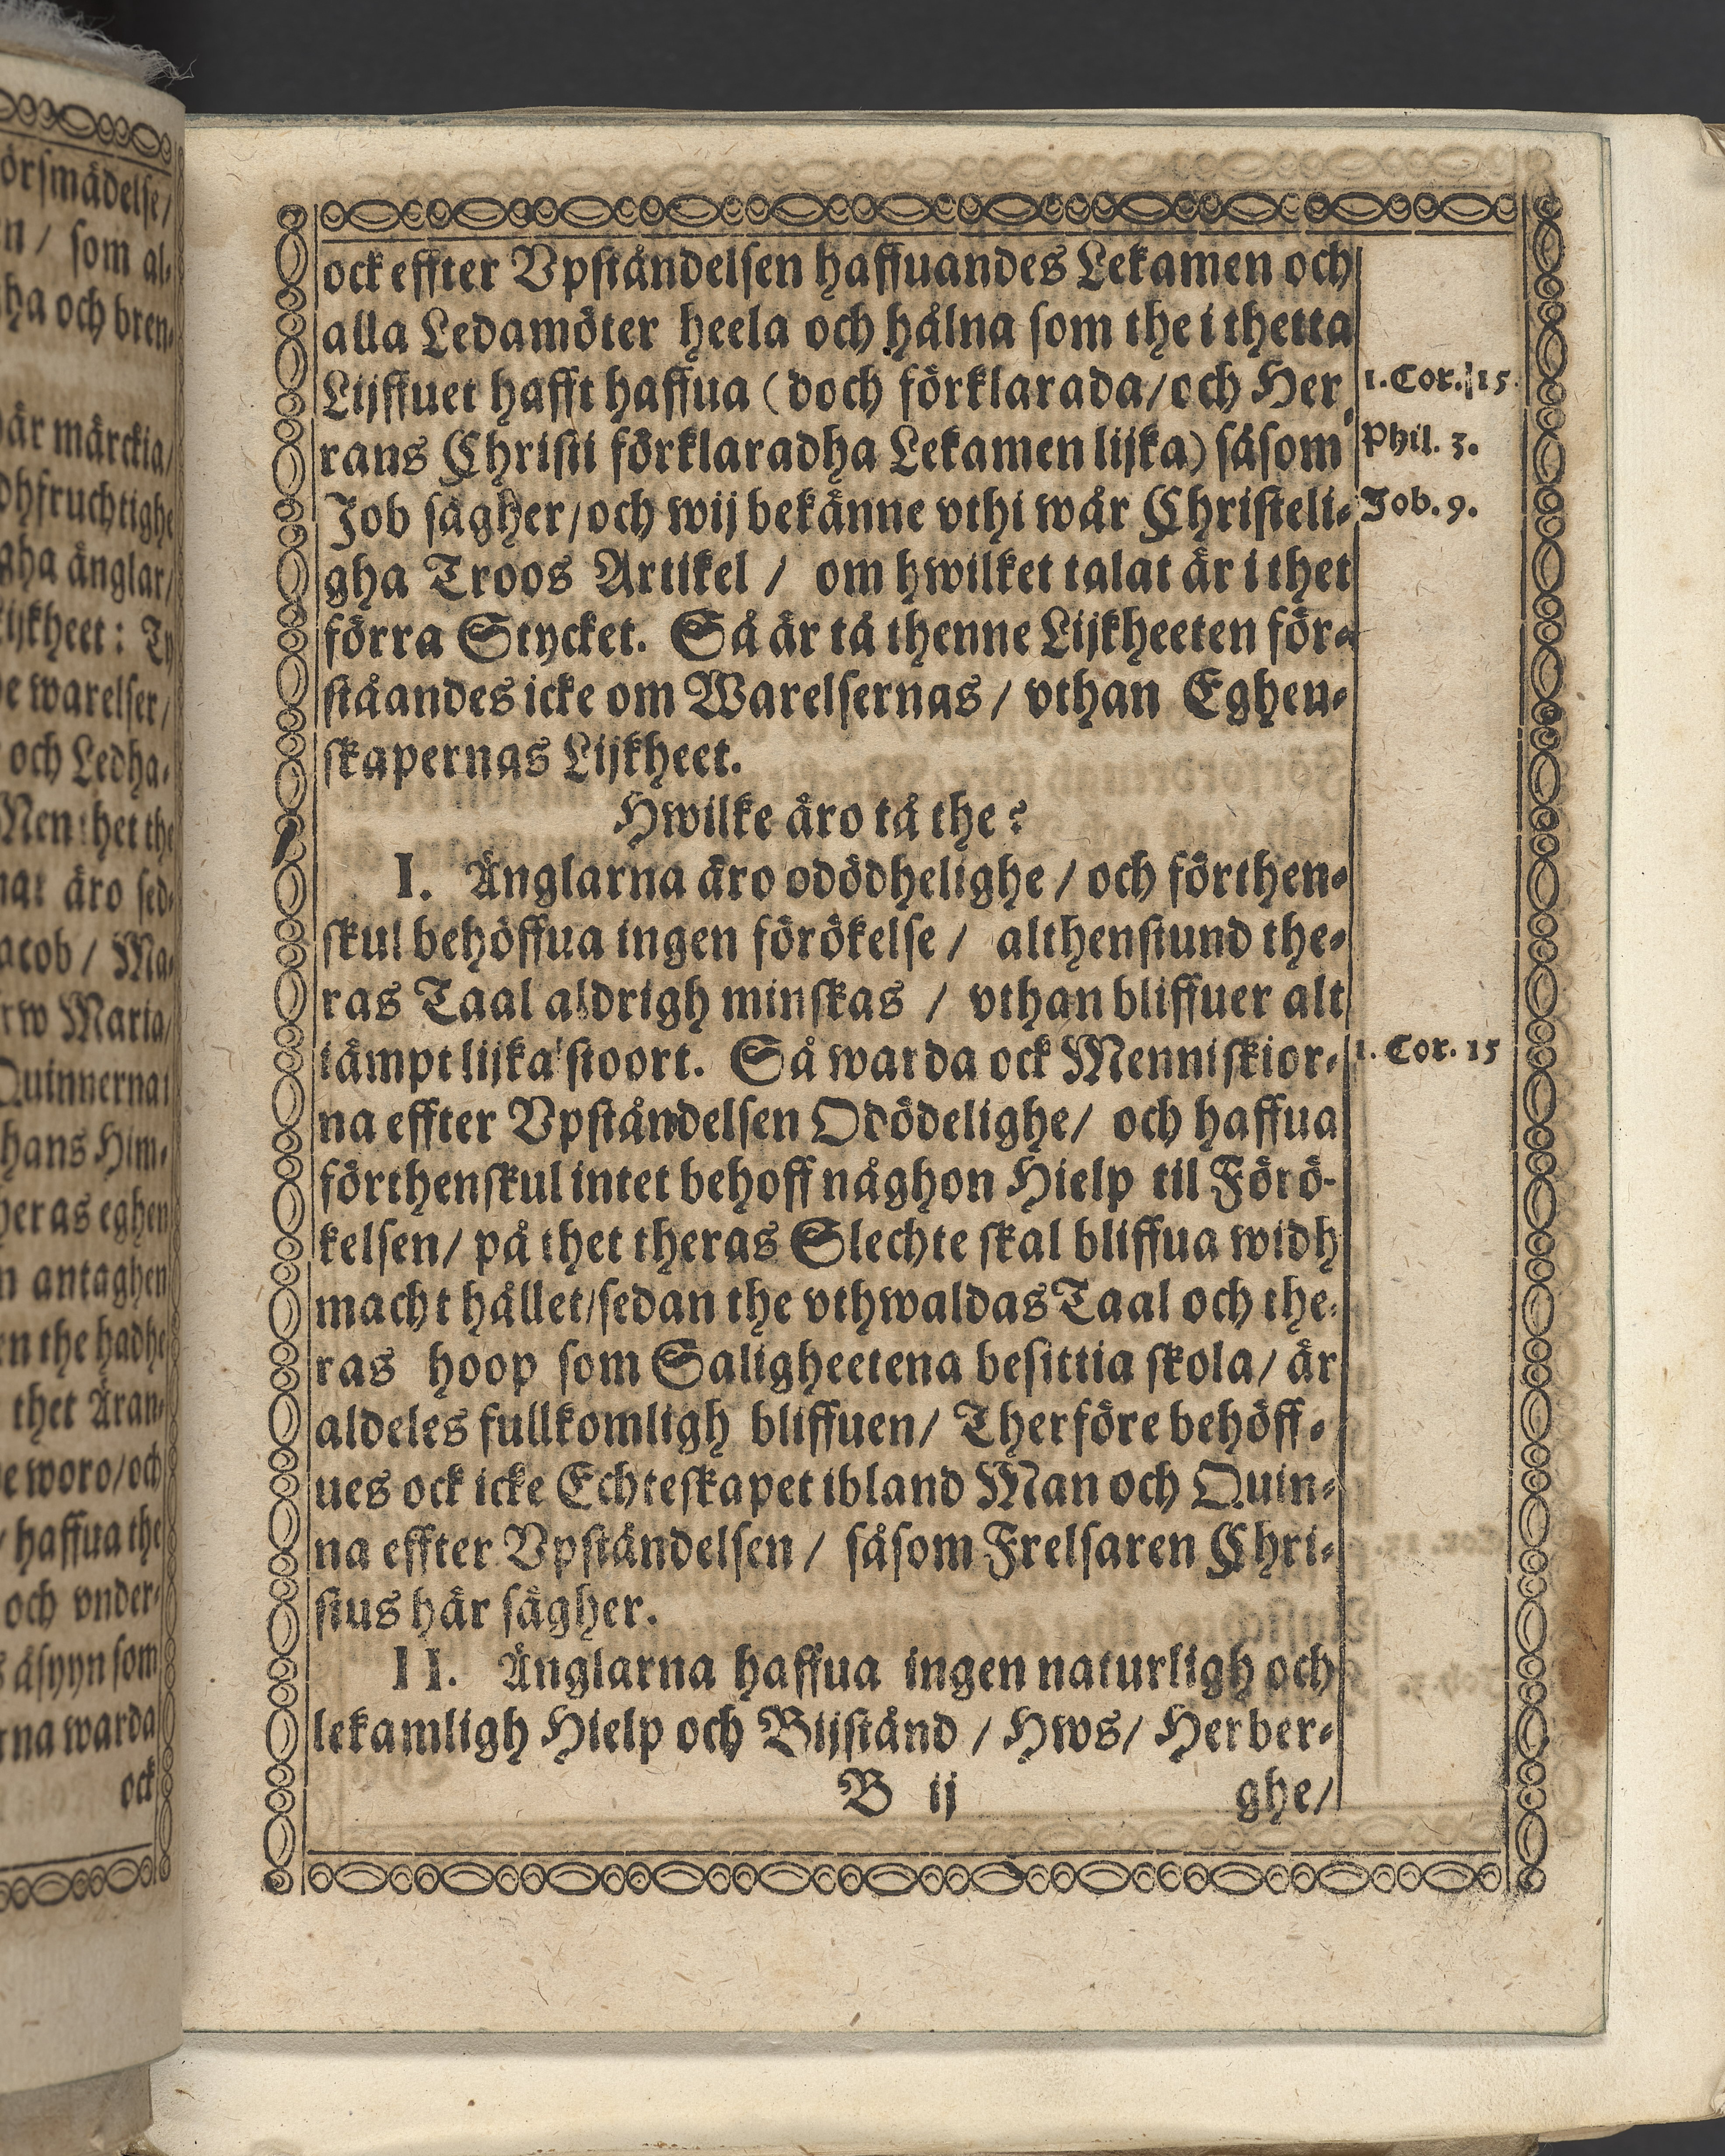 ock effter Vpståndelsen haffuandes Lekamen och
alla Ledamöter heela och hålna som the i thetta
Lijffuet hafft haffua (doch förklarada/och Her-
1. Cor. 15.
rans Christi förklaradha Lekamen lijka) såsom
Phil. 3.
Job sägher/och wij bekänne vthi wår Christeli-
Job. 9.
gha Troos Artikel / om hwilket talat är i thet
förra Stycket. Så är tå thenne Lijkheeten för-
ståandes icke om Warelsernas / vthan Eghen-
skapernas Lijkheet.
Hwilke äro tå the?
I. Änglarna äro odödhelighe / och förthen-
skul behöffua ingen förökelse / althenstund the-
ras Taal aldrigh minskas / vthan bliffuer alt
iämpt lijka stoort. Så warda ock Menniskior-
1. Cor. 15
na effter Vpståndelsen Odödelighe/ och haffua
förthenskul intet behoff någhon Hielp til Förö-
kelsen/ på thet theras Slechte skal bliffua widh
macht hållet/sedan the vthwaldas Taal och the-
ras hoop som Saligheetena besittia skola/ är
aldeles fullkomligh bliffuen/ Therföre behöff-
ues ock icke Echteskapet ibland Man och Quin-
na effter Vpståndelsen / såsom Frelsaren Chri-
stus här sägher.
II. Änglarna haffua ingen naturligh och
lekamligh Hielp och Bijstånd / Hws/ Herber-
B ij
ghe/